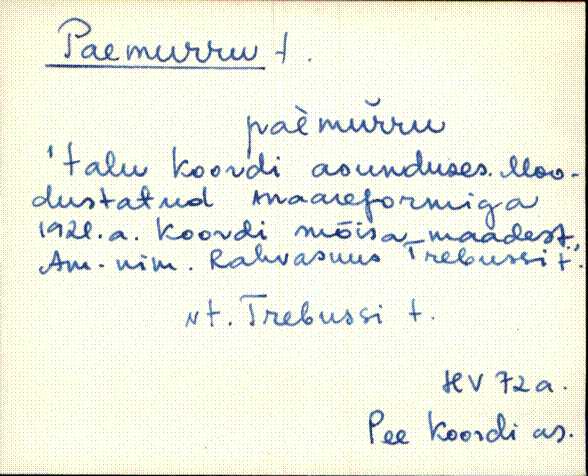 Paemurru t.
paèmŭrru
'talu Koordi asunduses. Moo-
dustatud maareformiga
1921. a. Koordi mõisa maadest,
Am. nim. Rahvasuus Trebussi t.
vt. Trebussi t.
HV 72 a.
Pee Koordi as.